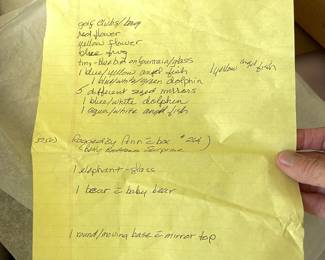 golf clubs/bag
red flower
yellow flower
blue frog
tiny - the bird on fountain/glass
1 blue/yellow angel fish
1 yellow angel fish
1 blue/white/green dolphin
5 different sized mirrors
1 blue/white dolphin
1 aqua/white angel fish
Raggedy Ann &
1 elephant - glass
1 bear & baby bear
1 round/moving base & mirror top